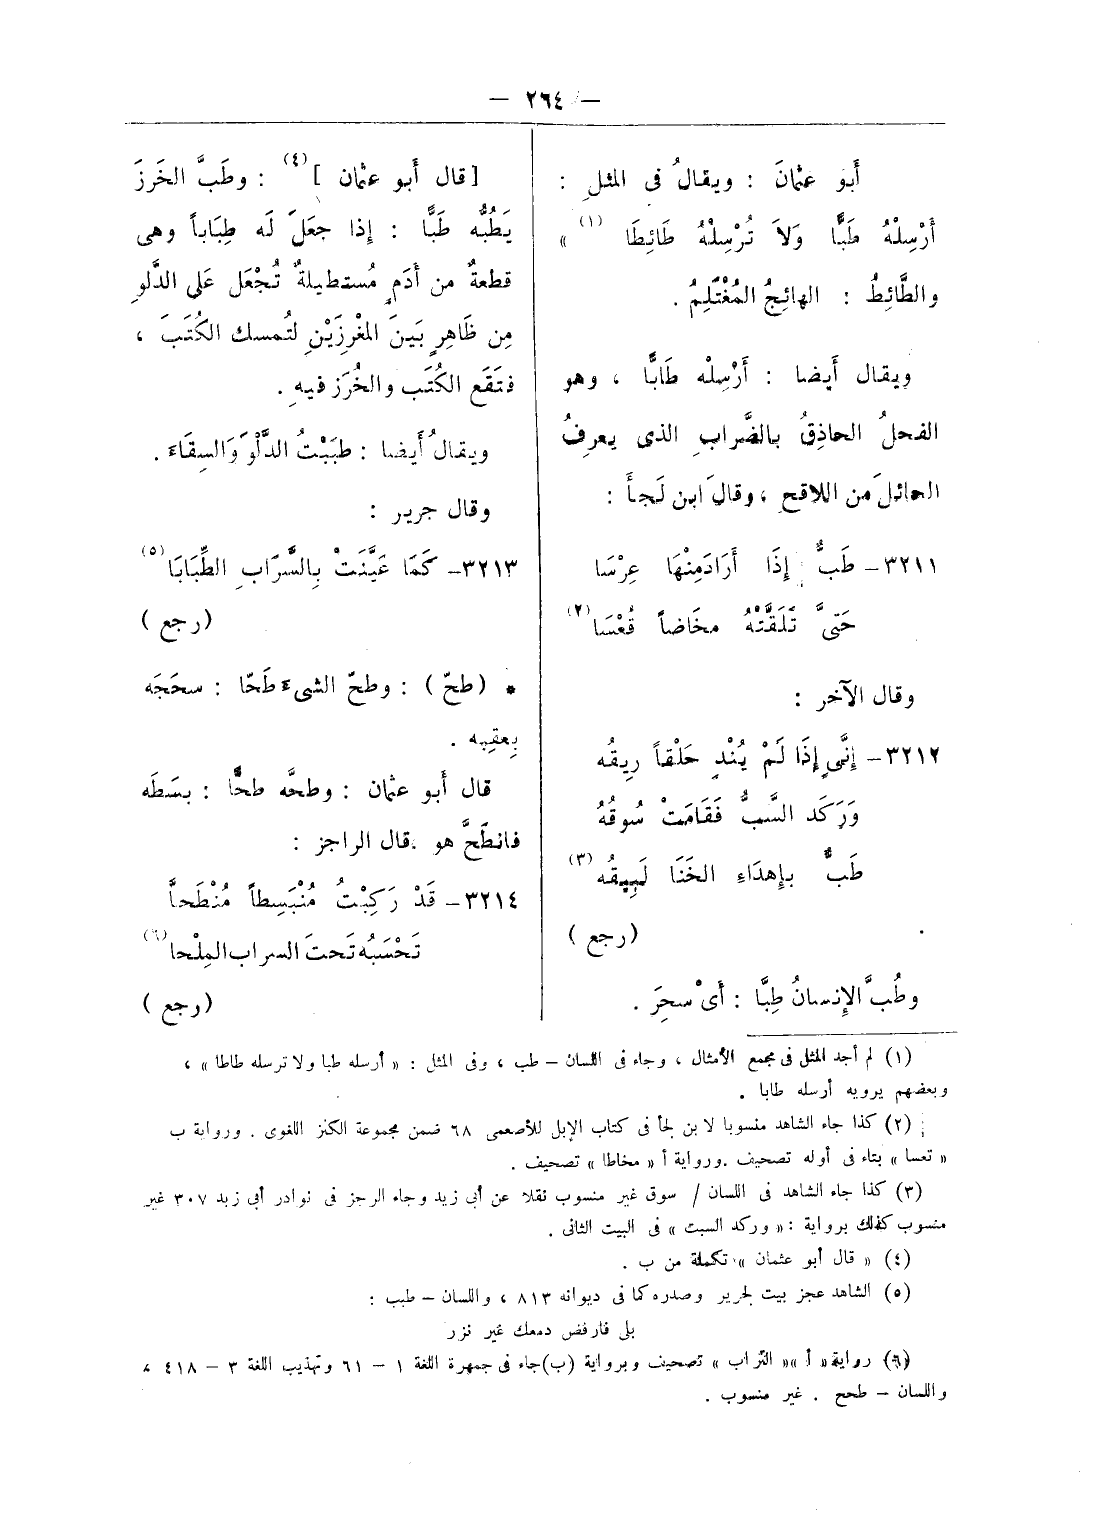 — ٢٦٤ —
أَبو عثمانَ : ويقالُ فى المثلِ :
أَرْسِلْهُ طَبًّا وَلاَ تُرْسِلْهُ طَائِطَا (١) »
والطَّائِطُ : الهائِجُ المُغْتَلِمُ .
ويقال أَيضا : أَرْسِلْه طَابًّا ، وهو
الفحلُ الحاذِقُ بالضَّرابِ الذى يعرِفُ
الحائلَ من اللاقحِ ، وقالَ ابن لَجأَ :
٣٢١١ – طَبٌّ إِذَا أَرَادَ مِنْهَا عِرْسَا
حَتىَّ تَلَقَّتْهُ مخَاضاً قُعْسَا (٢)
وقال الآخر :
٣٢١٢ – إِنَّى إِذَا لَمْ يُنْدِ حَلْقاً رِيقُه
وَرَكَد السَّبُّ فَقَامَتْ سُوقُهُ
طَبٌّ بإِهدَاءِ الخَنَا لَبِيقُه (٣)
(رجع )
وطُبَّ الإِنسانُ طِبًّا : أَىْ سحِرَ .
[ قال أَبو عثمان ] (٤) : وطَبَّ الخَرزَ
يَطُبُّه طَبًّا : إِذا جعَلَ لَه طِبَاباً وهى
قطعةٌ من أَدَمٍ مُستطيلةٌ تُجْعَل عَلى الدَّلوِ
مِن ظَاهِرٍ بَينَ المْغْرِزَيْنِ لتُمسك الكُتَبَ ،
فتَقَع الكُتَب والخُرَز فيهِ .
ويقالُ أَيضا : طبَبْتُ الدَّلْوَ وَالسِقَاءَ .
وقال جرير :
٣٢١٣ – كَمَا عَيَّنَتْ بِالسَّرَابِ الطِّبَابَا (٥)
(رجع )
* (طحّ ) : وطحّ الشىءَ طَحًّا : سحَجَه
بِعقِبِه .
قال أَبو عثمان : وطحَّه طحًّا : بسَطَه
فانطَحَّ هو . قال الراجز :
٣٢١٤ – قَدْ رَكِبْتُ مُنْبَسِطاً مُنْطَحاًّ
تَحْسَبُه تَحتَ السراب المِلْحا (٦)
(رجع )
(١) لم أجد المثل فى مجمع الأمثال ، وجاء فى اللسان – طب ، وفى المثل : « أرسله طبا ولا ترسله طاطا » ،
وبعضهم يرويه أرسله طابا .
(٢) كذا جاء الشاهد منسوبا لا بن لجأ فى كتاب الإبل للأصمعى ٦٨ ضمن مجموعة الكنز اللغوى . ورواية ب
« تعسا » بتاء فى أوله تصحيف . ورواية أ « مخاطا » تصحيف .
(٣) كذا جاء الشاهد فى اللسان / سوق غير منسوب نقلا عن أبى زيد وجاء الرجز فى نوادر أبى زيد ٣٠٧ غير
منسوب كذلك برواية : « وركد السبت » فى البيت الثانى .
(٤) « قال أبو عثمان » تكملة من ب .
(٥) الشاهد عجز بيت لجرير وصدره كما فى ديوانه ٨١٣ ، واللسان – طبب :
بلى فارفض دمعك غير نزر
(٦) رواية « أ » « التراب » تصحيف وبرواية (ب) جاء فى جمهرة اللغة ١ – ٦١ وتهذيب اللغة ٣ – ٤١٨ ،
واللسان – طحح . غير منسوب .